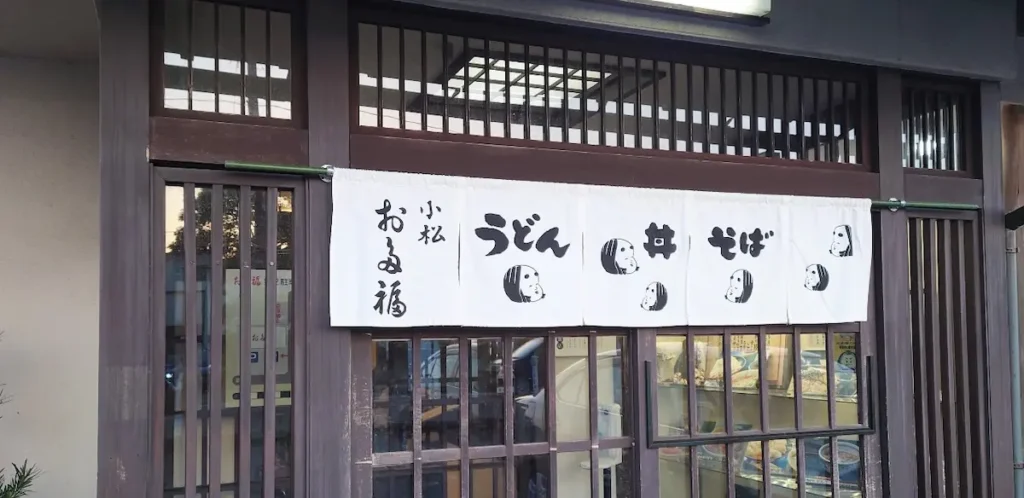 小松
お多福
うどん
丼
そば